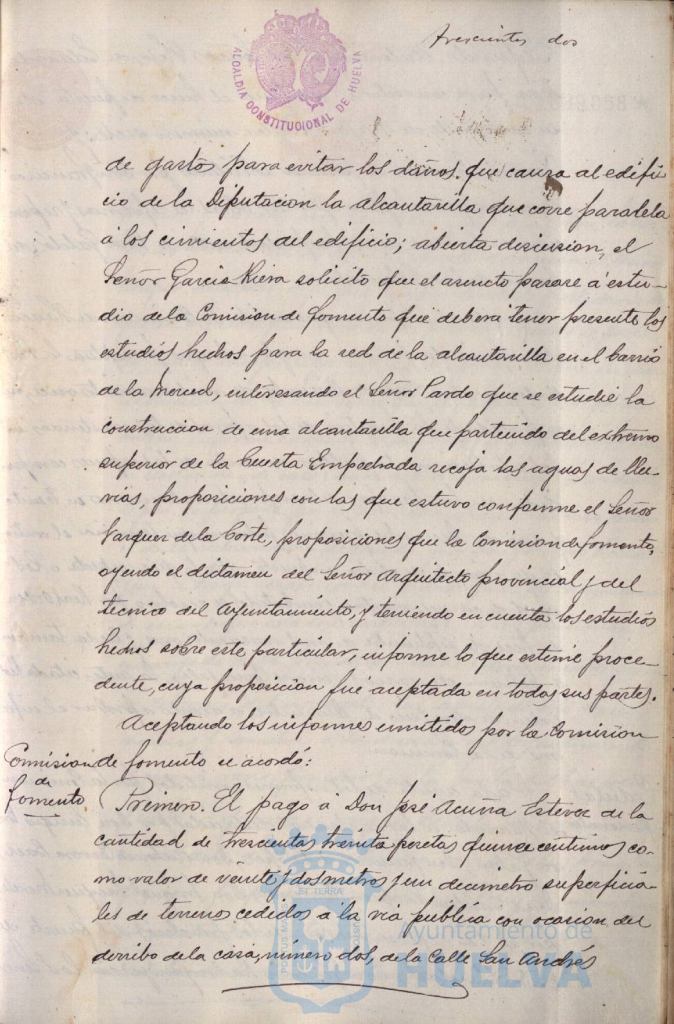 trescientos dos
ALCALDIA CONSTITUCIONAL DE HUELVA
de gastos para evitar los daños que causa al edifi
cio de la Diputacion la alcantarilla que corre paralela
á los cimientos del edificio; abierta discusion, el
Señor Garcia Riera solicitó que el asunto pasase á estu-
dio de la Comision de fomento que deberá tener presente los
estudios hechos para la red de la alcantarilla en el barrio
de la Merced, interesando el Señor Pardo que se estudie la
construccion de una alcantarilla que partiendo del extremo
superior de la Cuesta Empedrada recoja las aguas de llu-
vias, proposiciones con las que estuvo conforme el Señor
Vazquez de la Corte, proposiciones que la Comision de fomento,
oyendo el dictamen del Señor Arquitecto provincial y del
tecnico del Ayuntamiento, y teniendo en cuenta los estudios
hechos sobre este particular, informe lo que estime proce-
dente, cuya proposicion fué aceptada en todas sus partes.
Aceptando los informes emitidos por la Comision
Comision de fomento
de fomento se acordó:
Primero. El pago á Don José Acuña Estevez de la
cantidad de trescientas treinta pesetas quince centimos co-
mo valor de veinte y dos metros y un decimetro superficia-
les de terrenos cedidos á la via publica con ocasion del
derribo de la casa, número dos, de la Calle San Andrés
Ayuntamiento de
HUELVA